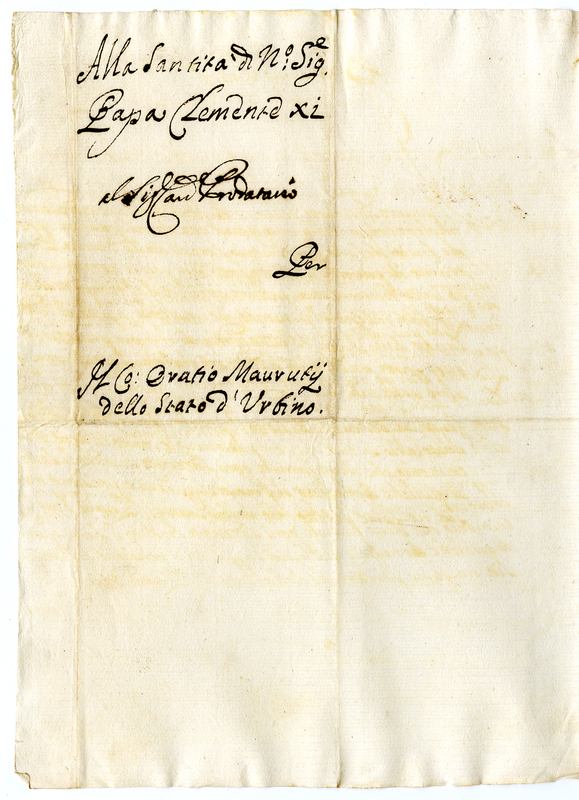 Alla Santità di N.º Sig.e
Papa Clemente xi
al Sig Card Prodatario
Per
Il Co: Oratio Maurutij
dello Stato d'Urbino.